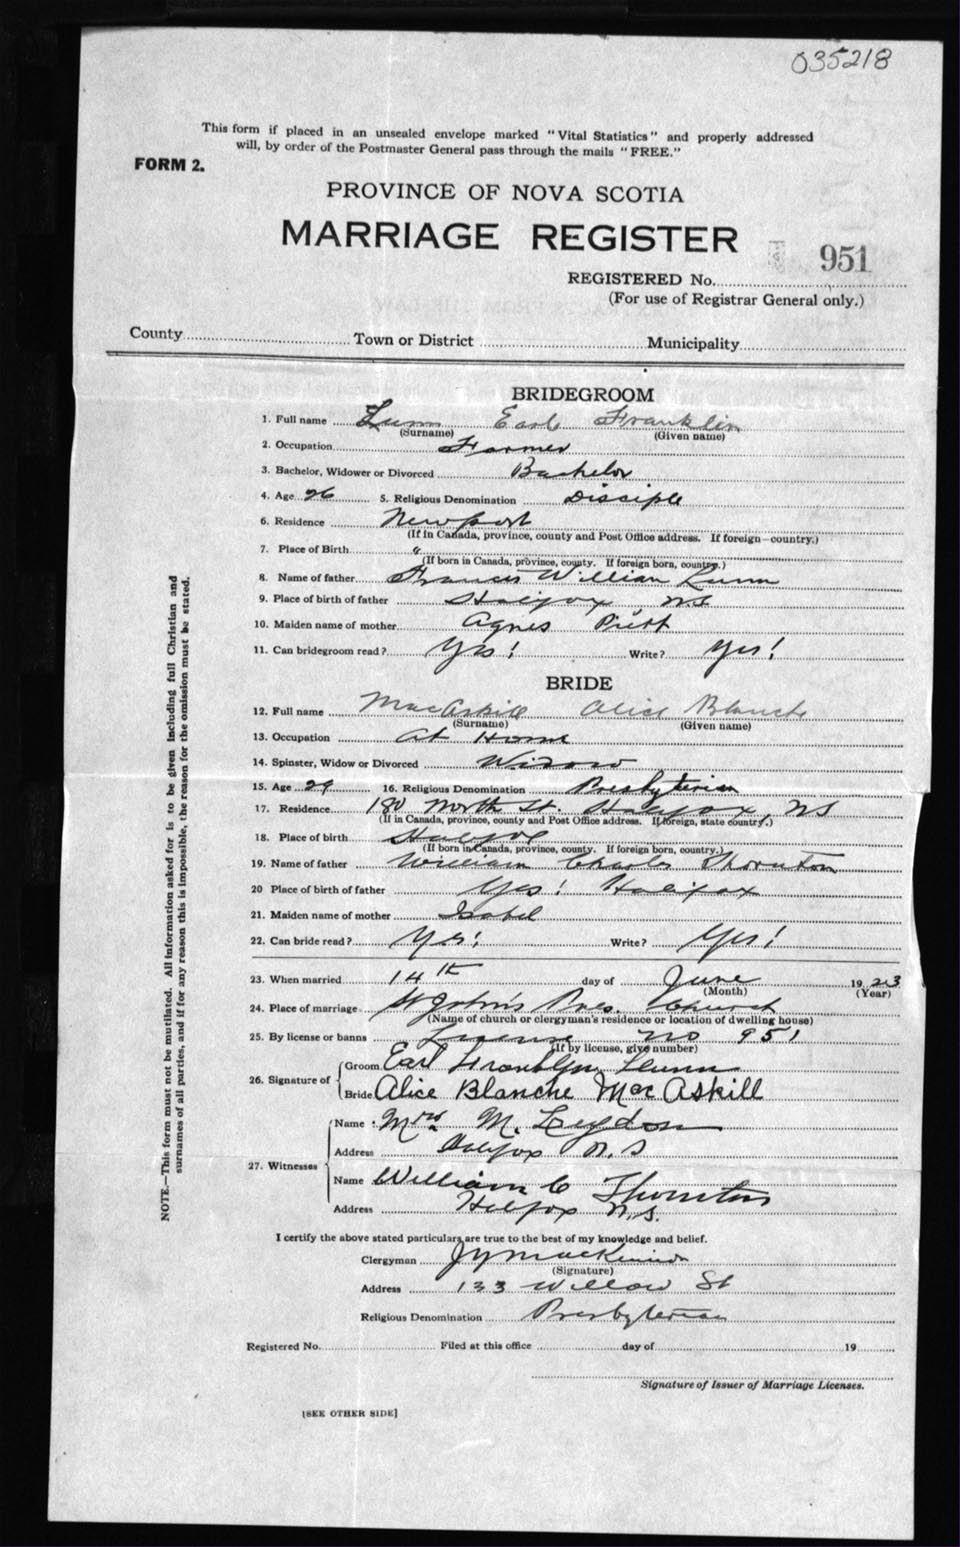 035218
This form if placed in an unsealed envelope marked "Vital Statistics" and properly addressed
will, by order of the Postmaster General pass through the mails "FREE."
FORM 2.
PROVINCE OF NOVA SCOTIA
MARRIAGE REGISTER
951
REGISTERED No.
(For use of Registrar General only.)
County Town or District Municipality
BRIDEGROOM
1. Full name Lunn Earl Franklin
(Surname) (Given name)
2. Occupation Farmer
3. Bachelor, Widower or Divorced Bachelor
4. Age 26 5. Religious Denomination Disciple
6. Residence Newport
(If in Canada, province, county and Post Office address. If foreign—country.)
7. Place of Birth "
(If born in Canada, province, county. If foreign born, country.)
8. Name of father Francis William Lunn
9. Place of birth of father Halifax, N.S
10. Maiden name of mother Agnes
11. Can bridegroom read? Yes! Write? Yes!
BRIDE
12. Full name MacAskill Alice Blanche
(Surname) (Given name)
13. Occupation At Home
14. Spinster, Widow or Divorced Widow
15. Age 29 16. Religious Denomination Presbyterian
17. Residence 180 North St. Halifax, NS
(If in Canada, province, county and Post Office address. If foreign, state country.)
18. Place of birth Halifax
(If born in Canada, province, county. If foreign born, country.)
19. Name of father William Charles Thornton
20 Place of birth of father Yes! Halifax
21. Maiden name of mother Isabel
22. Can bride read? Yes! Write? Yes!
23. When married 14th day of June 1923
(Month) (Year)
24. Place of marriage St John's Pres. Church
(Name of church or clergyman's residence or location of dwelling house)
25. By license or banns License No 951
(If by license, give number)
26. Signature of Groom Earl Franklyn Lunn
Bride Alice Blanche MacAskill
27. Witnesses Name Mrs M. Leydon
Address Halifax N.S
Name William C Thornton
Address Halifax N.S.
I certify the above stated particulars are true to the best of my knowledge and belief.
Clergyman
(Signature)
Address 133 Willow St
Religious Denomination Presbyterian
Registered No. Filed at this office day of 19
Signature of Issuer of Marriage Licenses.
[SEE OTHER SIDE]
NOTE.—This form must not be mutilated. All information asked for is to be given including full Christian and
surnames of all parties, and if for any reason this is impossible, the reason for the omission must be stated.